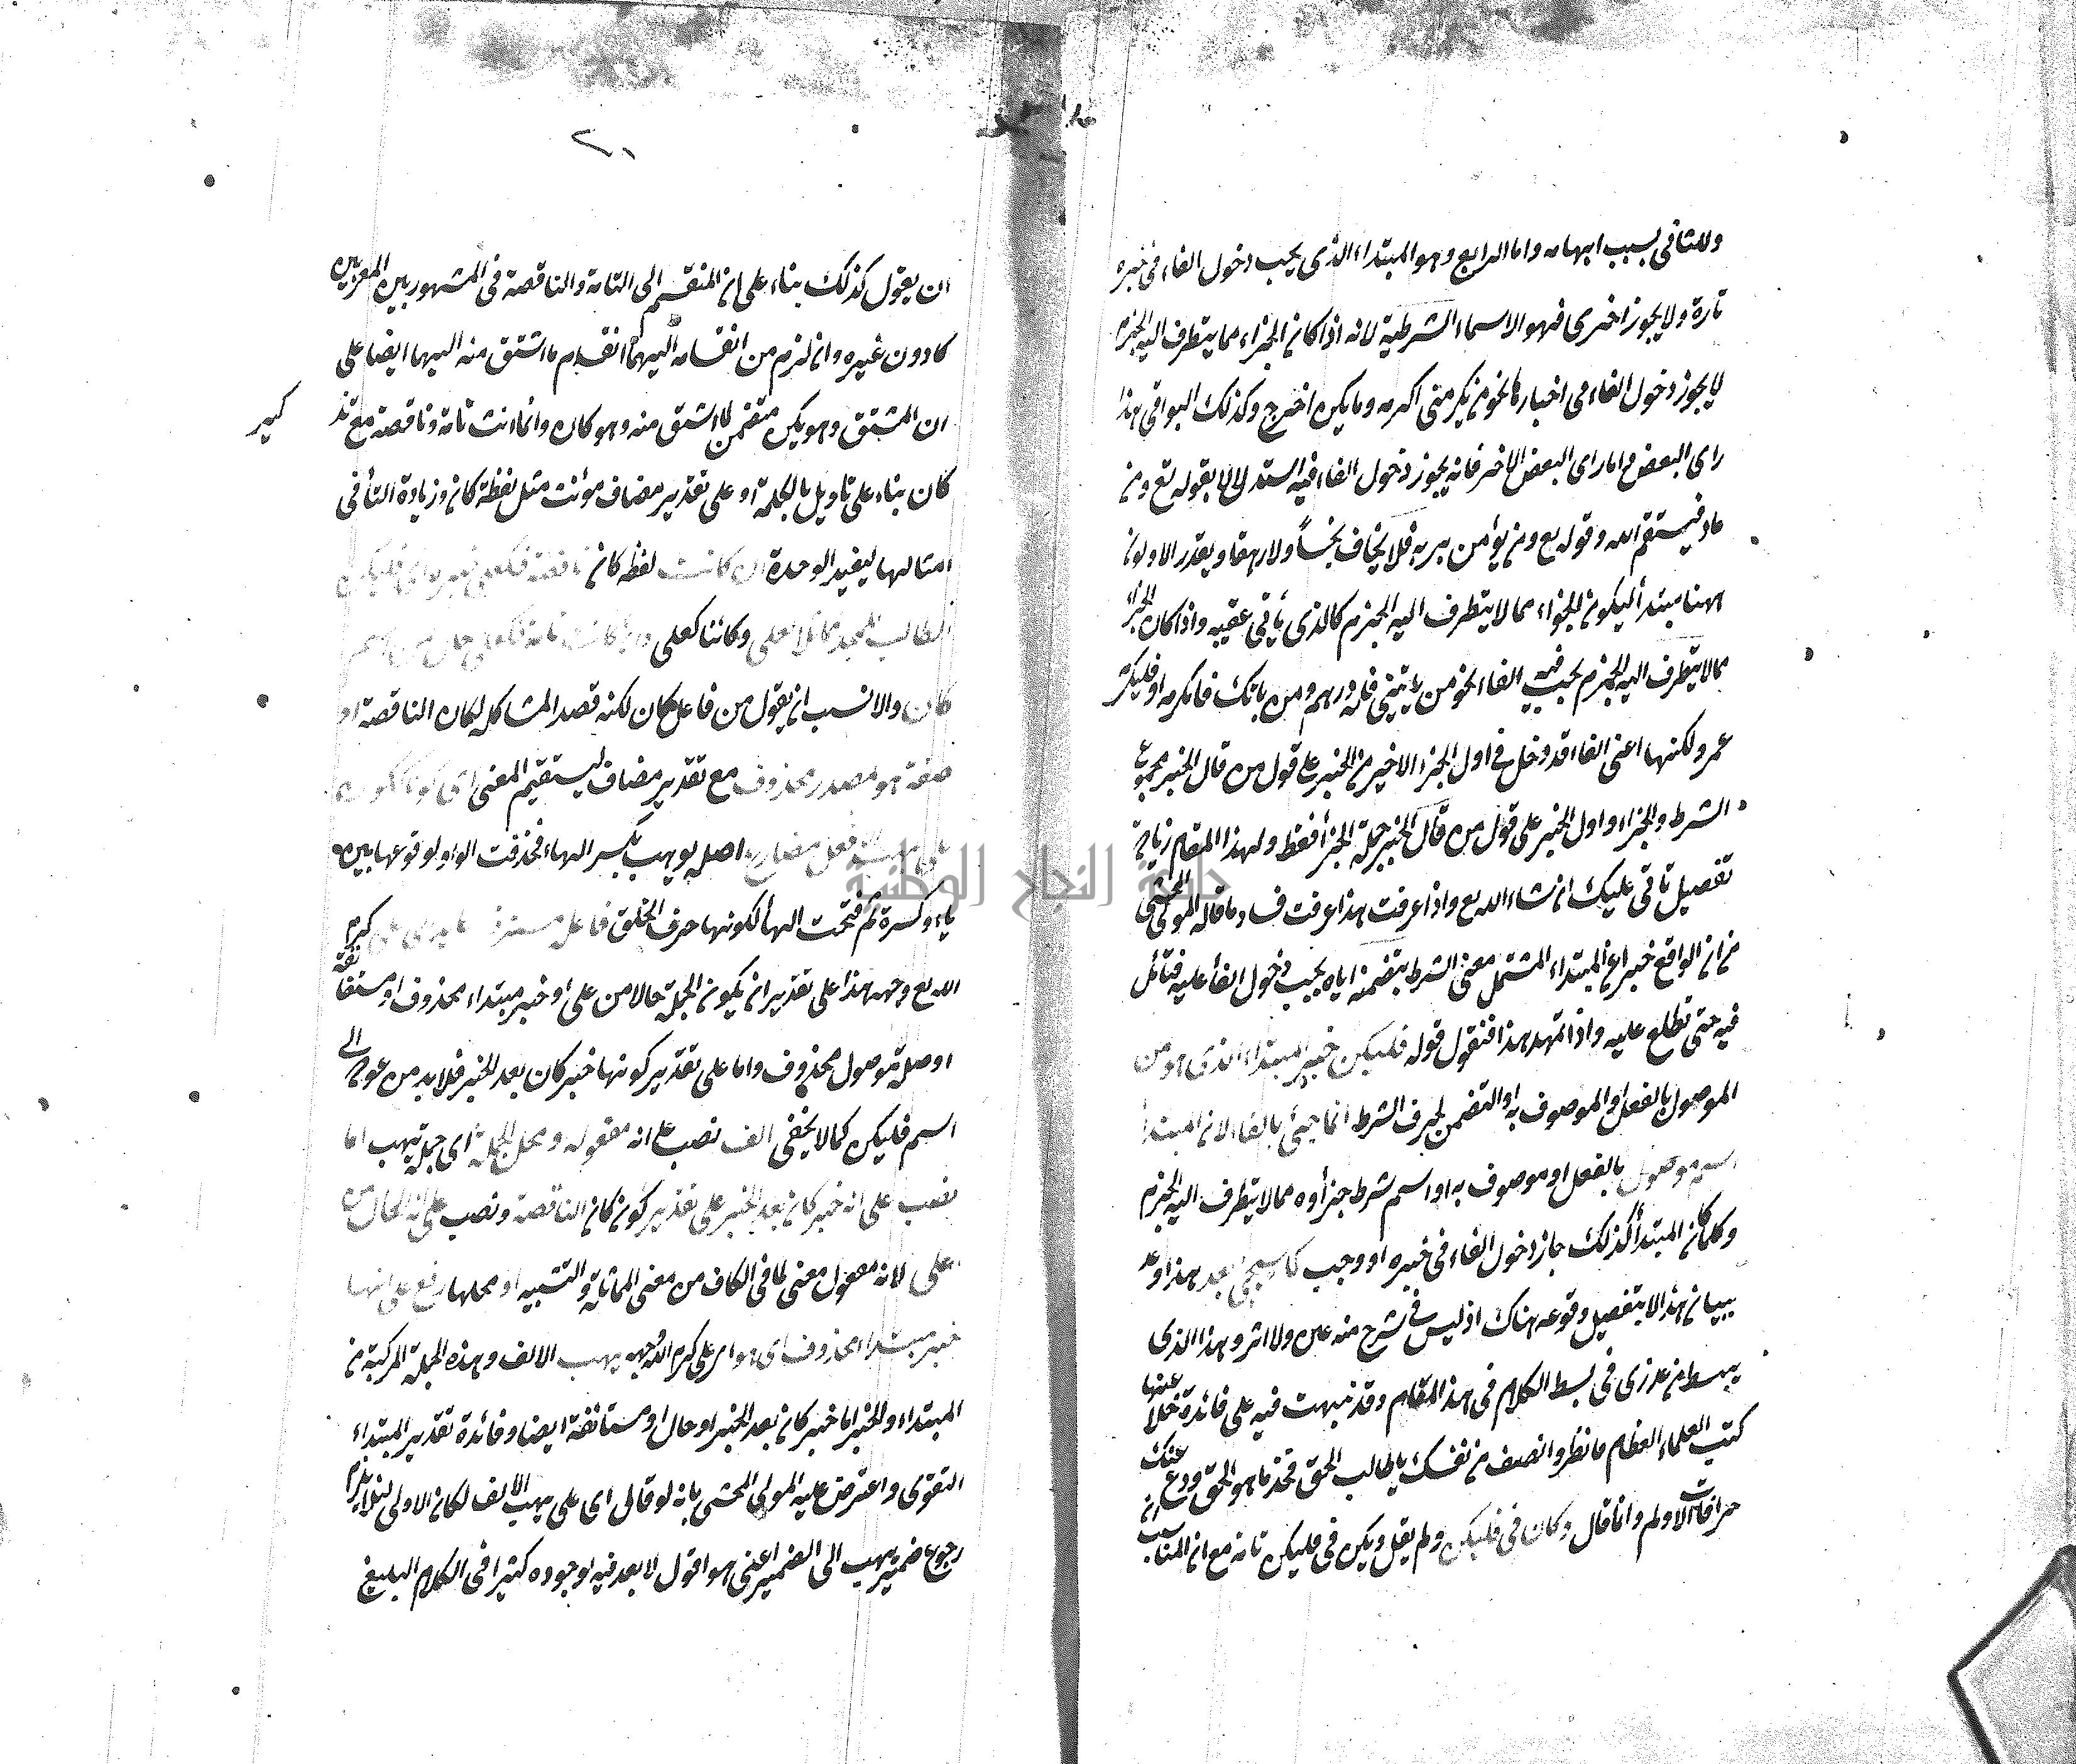 وللثاني بسبب ابهامه واما الرابع وهو المبتداء الذي يجب دخول الفاء في خبره
تارة ولا يجوز اخرى فهو الاسماء الشرطية لانه اذا كان الجزاء مما يتطرف اليه الجزم
لا يجوز دخول الفاء في اخبارها نحو من يكرمني اكرمه وما يكن اخرج وكذلك البواقي هذا
راى البعض واما راى البعض الاخر فانه يجوز دخول الفاء فيه استدلالا بقوله تع ومن
عاد فينتقم الله وقوله تع ومن يؤمن بربه فلا يخاف بخساً ولا رهقا ويقدر الاولون
ههنا مبتدأ ليكون الجزاء مما لا يتطرف اليه الجزم كالذي يأتي عقيبه واذا كان الجزاء
مما لا يتطرف اليه الجزم يجب فيه الفاء نحو من يأتيني فله درهم ومن يأتك فاكرمه او فليكرم
عمرو لكنها اعني الفاء قد دخل في اول الجزء الاخير من الخبر على قول من قال الخبر مجموع
الشرط والجزاء واول الخبر على قول من قال الخبر جملة الجزأ فقط ولهذا المقام زيادة
تفصيل تأتي عليك ان شاء الله تع واذا عرفت هذا عرفت فساد ما قاله المولى المحشي
من ان الواقع خبرا عن المبتداء المشتمل معنى الشرط بتضمنه اياه يجب دخول الفأ عليه فتأمل
فيه حتى تطلع عليه واذا تمهد هذا فنقول قوله فليكن خبر المبتداء الذي هو من
الموصول بالفعل او الموصوف به او التضمن لحرف الشرط انما جيئ بالفاء لان المبتدأ
اسم موصول بالفعل او موصوف به او اسم شرط جزأوه مما لا يتطرف اليه الجزم
وكلما كان المبتدأ كذلك جاز دخول الفاء في خبره او وجب كما سيجئ بعد هذا وعد
ببيان هذا لا بتفصيل وقوعه هناك اذ ليس في شرح منه عين ولا اثر وهذا الذي
يبسط من عذرى في بسط الكلام في هذا المقام وقد نبهت فيه على فائدة خلا عنها
كتب العلماء العظام فانظر وانصف من نفسك يا طالب الحق فخذ ما هو الحق ودع عنك
خرافات الاولم وانما قال وكان في فليكن ولم يقل ويكن في فليكن تامة مع ان المناسب ان
٢٠
ان يقول كذلك بناء على ان المنقسم الى التامة والناقصة في المشهور بين المعربين
كا دون غيره وان لزم من انقسامه اليهما انقسام ما اشتق منه اليهما ايضا على
ان المشتق وهو يكن متضمن لما اشتق منه وهو كان وانما انث تامة وناقصة مع تذ
كير
كان بناء على تاويل بالكلمة او على تقدير مضاف مؤنث مثل لفظة كان وزيادة التأ في
امثالها ليفيد الوحدة ان كانت لفظه كان ناقصة فكعلى خبره اي فليكن
الطالب للمجد مماثلا لعلى وكائنا كعلى وان كانت تامة فكعلى حال من اسم
كان والانسب ان يقول من فاعل كان لكنه قصد المشاكل لكان الناقصة او
صفة هو مصدر محذوف مع تقدير مضاف ليستقيم المعنى اي كونا ككون
على يهب فعل مضارع اصله يوهب بكسر الهاء فحذفت الواو لوقوعها بين
ياء وكسرة ثم فتحت الهأ لكونها حرف الحلق فاعل مستتر عايد الى على كرم
الله تع وجهه هذا على تقدير ان يكون الجملة حالا من على او خبر مبتداء محذوف او مستأنفة
او صلة موصول محذوف واما على تقدير كونها خبر كان بعد الخبر فلا بد من عوده الى
اسم فليكن كما لا يخفى الف نصب على انه مفعوله ومحل الجملة اي جملة يهب اما
نصب على انه خبر كان بعد الخبر على تقدير كون كان الناقصة ونصب على انه الحال من
على لانه معمول معنى لما في الكاف من معنى المماثلة والتشبيه او محلها رفع على انها
خبر مبتداء محذوف اي هو اي على كرم الله وجهه يهب الالف وهذه الجملة المركبة من
المبتداء والخبر اما خبر كان بعد الخبر او حال او مستانفة ايضا وفائدة تقدير المبتداء
التقوى واعترض عليه المولى المحشي بانه لو قال اي على يهب الالف لكان الاولى لئلا يلزم
رجوع ضمير يهب الى الضمير اعني هو اقول لا بعد فيه لوجوده كثيرا في الكلام البليغ
جامعة النجاح الوطنية